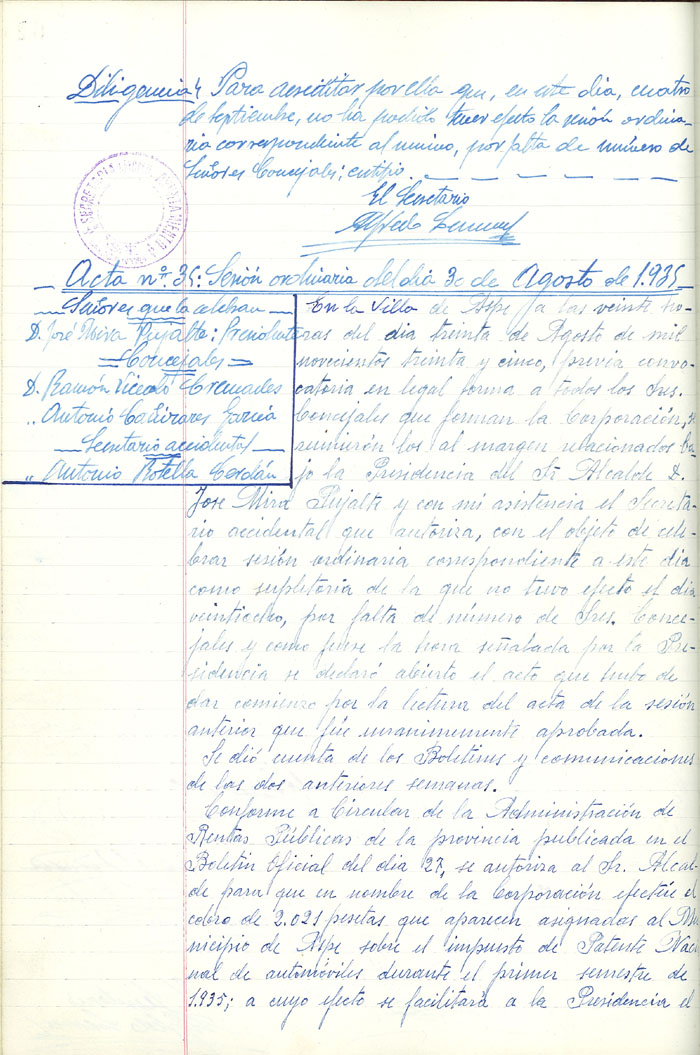 Diligencia: Para acreditar por ella que, en este dia, cuatro
de septiembre, no ha podido tener efecto la sesión ordina-
ria correspondiente al mismo, por falta de número de
Señores Concejales; certifico.
El Secretario
Alfredo
SECRETARIA AYUNTAMIENTO
Acta nº 35: Sesión ordinaria del dia 30 de Agosto de 1.935
Señores que la celebran
D. José Mira Pujalte: Presidente
=Concejales=
D. Ramón Vicedó Cremades
" Antonio Cañizares García
Secretario accidental
" Antonio Botella Cerdán
En la Villa de Aspe a las veinte ho-
ras del dia treinta de Agosto de mil
novecientos treinta y cinco, previa convo-
catoria en legal forma a todos los Sres.
Concejales que forman la Corporación, se
reunieron los al margen relacionados ba-
jo la Presidencia del Sr. Alcalde D.
Jose Mira Pujalte y con mi asistencia el Secreta-
rio accidental que autoriza, con el objeto de cele-
brar sesión ordinaria correspondiente a este dia
como supletoria de la que no tuvo efecto el dia
veintiocho, por falta de número de Sres. Conce-
jales y como fuese la hora señalada por la Pre-
sidencia se declaró abierto el acto que hubo de
dar comienzo por la lectura del acta de la sesión
anterior que fué unanimemente aprobada.
Se dió cuenta de los Boletines y comunicaciones
de las dos anteriores semanas.
Conforme a Circular de la Administración de
Rentas Públicas de la provincia publicada en el
Boletin Oficial del dia 27, se autoriza al Sr. Alcal-
de para que en nombre de la Corporación efectúe el
cobro de 2.021 pesetas que aparecen asignadas al Mu-
nicipio de Aspe sobre el impuesto de Patente Nacio-
nal de automóviles durante el primer semestre de
1.935; a cuyo efecto se facilitará a la Presidencia el